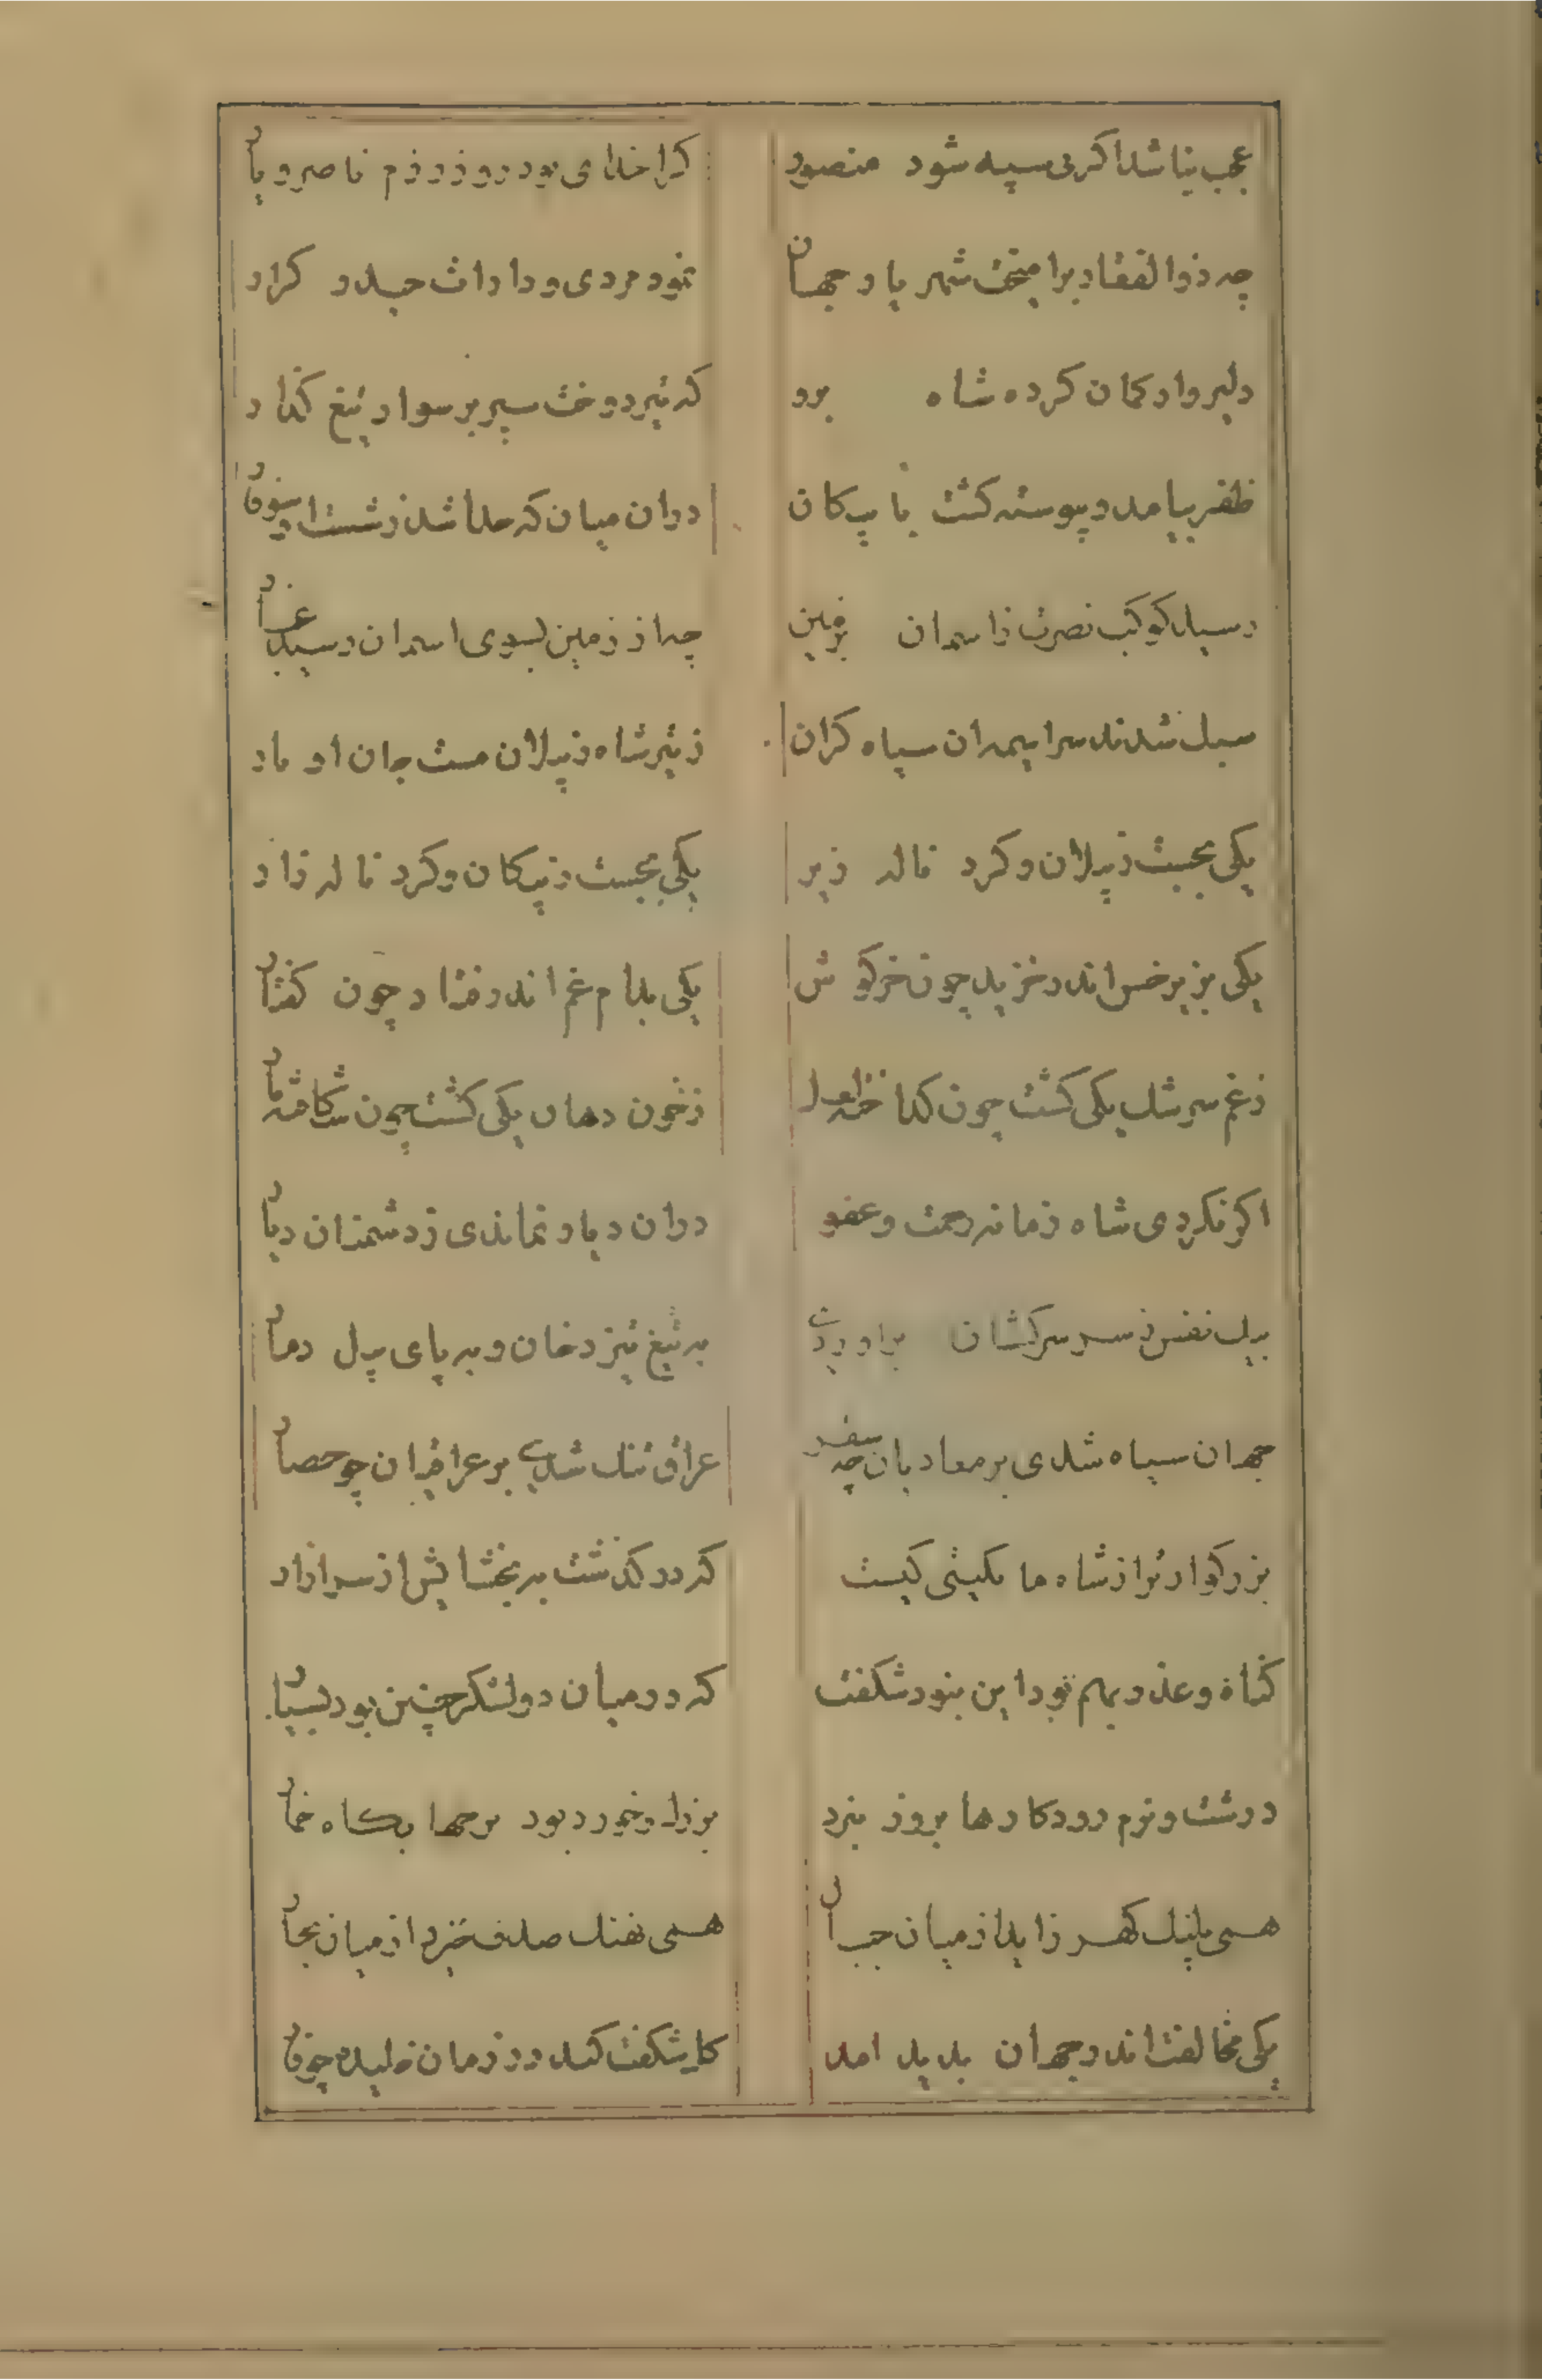 عجب نباشد اگر بی سپه شود منصور
کرا خدای بود روز رزم ناصر و یار
چه ذوالفقار برامیخت شهریار جهان
نمود مردی و دا داث حیدر کرار
دلیروار کمان کرده شاه برو
که تیر دوخت سپر بر سوار تیغ گذار
ظفر بیامد و پیوسته کشت با پیکان
دران میان که جدا شد ز شست او سوفار
رسید کوکب نصرت ز اسمان بزمین
چه از زمین بسوی اسمان رسید غبار
سبک شدند سراسیمه ان سپاه کران
ز تیر شاه ز پیلان مست جان او بار
یکی بجست ز پیلان و کرد ناله زیر
یکی بجست ز پیکان و کرد ناله زار
یکی بزیر خس اندر خزید چون خرکوش
یکی بدام غم اندر فتاد چون کفتار
ز غم سرشک یکی کشت چون
ز خون دهان یکی کشت چون شکافته نار
اگر نکردی شاه زمانه رحمت و عفو
دران دیار نماندی ز دشمنان دیار
بیک نفس ز سر سرکشان براوردی
به تیغ تیز دخان و به پای پیل دمار
جهان سیاه شدی بر معادیان چه سفر
عراق تنک شدی بر عراقیان چو حصار
بزرکوارتر از شاه ما بگیتی کیست
که درکذشت به بخشایش از سر ازار
کناه و عذر بهم بود این نبود شکفت
که در میان دو لشکر چنین بود بسیار
درشت و نرم رود کارها بروز نبرد
بزرک و خورد بود برجها بگاه خمار
همی پلنک کهر زاید از میان جبال
همی نهنک صدف خیزد از میان بحار
یکی مخالفت اندر جهان پدید امد
کل شکفت کند در زمان خلیده چو خار